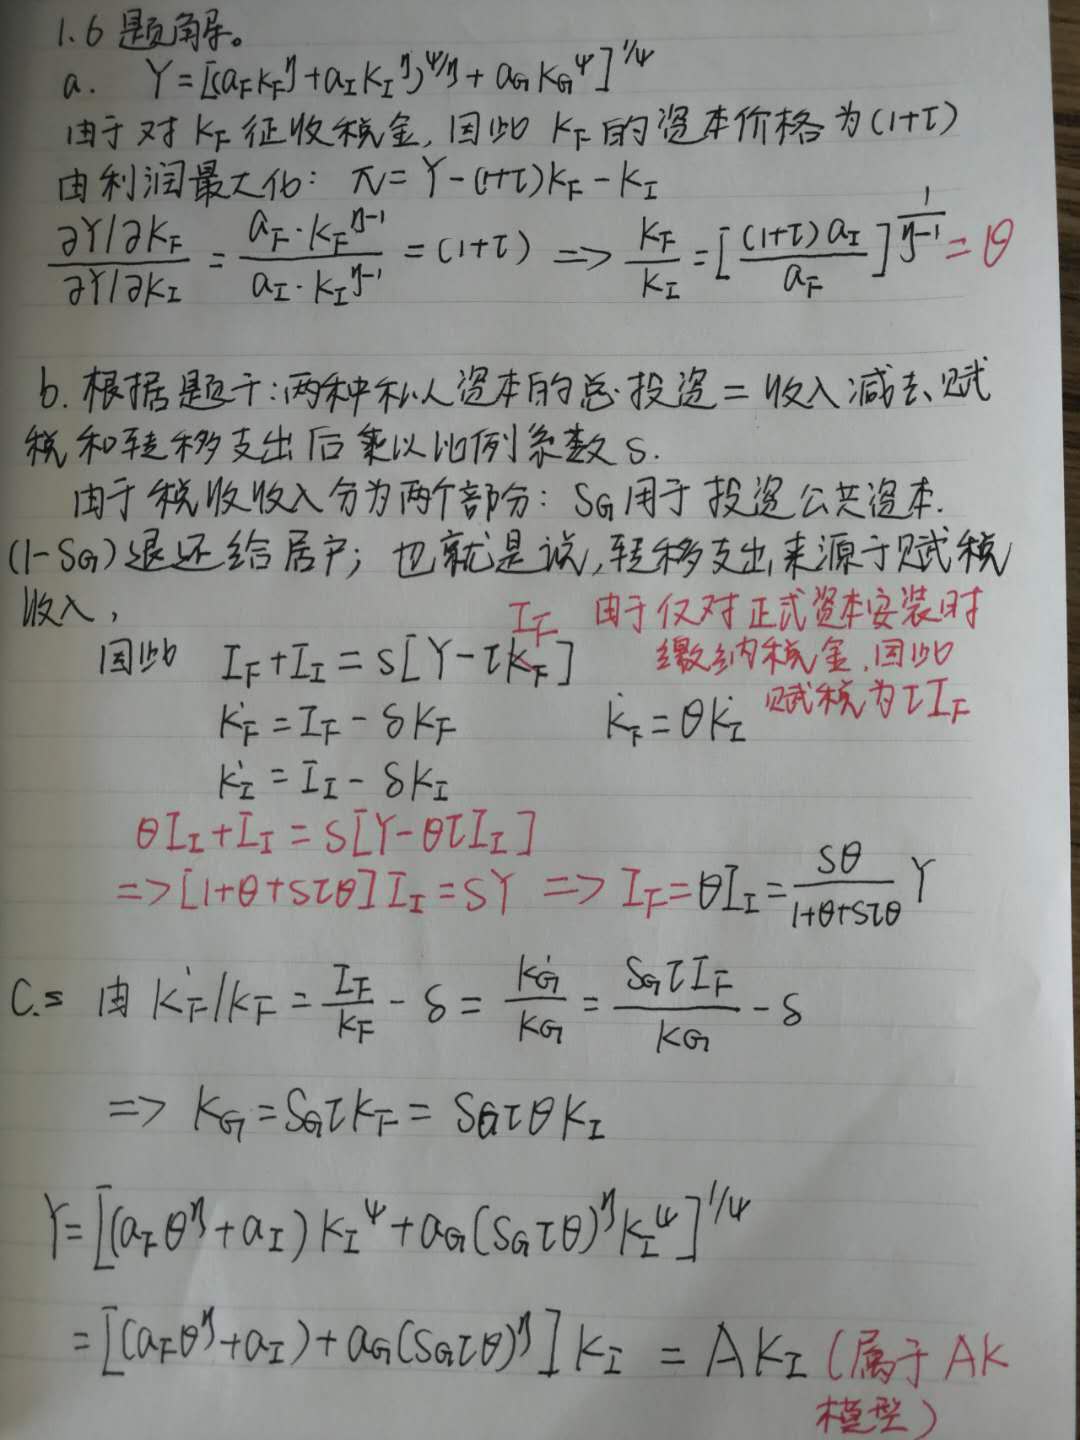 1.6 题解。
a. Y=[(a_F K_F^η+a_I K_I^η)^{ψ/η}+a_G K_G^ψ]^{1/ψ}
由于对 K_F 征收税金,因此 K_F 的资本价格为(1+τ)
由利润最大化: π=Y-(1+τ)K_F-K_I
\frac{∂Y/∂K_F}{∂Y/∂K_I} = \frac{a_F·K_F^{η-1}}{a_I·K_I^{η-1}} = (1+τ) => \frac{K_F}{K_I} = [\frac{(1+τ)a_I}{a_F}]^{\frac{1}{η-1}} = θ
b. 根据题干:两种私人资本的总投资=收入减去赋
税和转移支出后乘以比例系数 s.
由于税收收入分为两个部分: S_G 用于投资公共资本.
(1-S_G)退还给居户; 也就是说,转移支出来源于赋税
收入,
I_F 由于仅对正式资本安装时
因此 I_F+I_I=s[Y-τK_F] 缴纳税金,因此
赋税为τI_F
K̇_F=I_F-δK_F K̇_F=θK̇_I
K̇_I=I_I-δK_I
θI_I+I_I=S[Y-θτI_I]
=>[1+θ+sτθ]I_I=SY => I_F=θI_I=\frac{Sθ}{1+θ+sτθ}Y
C. 由 K̇_F/K_F=\frac{I_F}{K_F}-δ=\frac{K̇_G}{K_G}=\frac{S_G τ I_F}{K_G}-δ
=> K_G=S_G τ K_F=S_G τ θ K_I
Y=[(a_F θ^η+a_I) K_I^ψ+a_G(S_G τθ)^η K_I^ψ]^{1/ψ}
=[(a_F θ^η+a_I)+a_G(S_G τθ)^η] K_I = A K_I (属于 AK
模型)